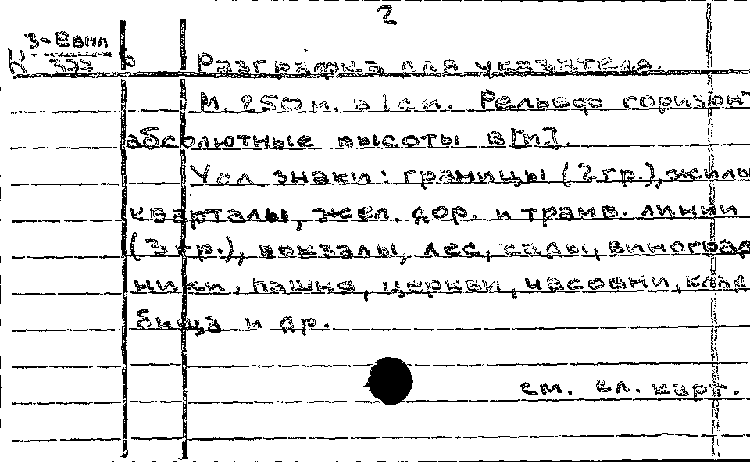 2
К 3-Евил Б Разграфка для указателя.
323
М. 250 м. в 1 см. Рельеф горизонт
абсолютные высоты в [м].
Усл. знаки: границы (2 гр.), жилы
кварталы, жел. дор. и трамв. линии
(3 гр.), вокзалы, лес, сады, виноград
ники, пашня, церкви, часовни, клад
бища и др.
см. сл. карт.